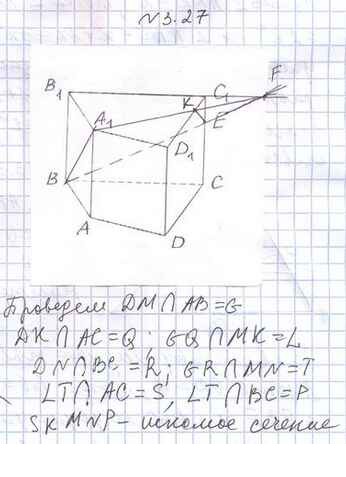 №3.27
B₁
A₁
K
C₁
F
E
D₁
B
C
A
D
Проведем DM∩AB=G
DK∩AC=Q; GQ∩MK=L
DN∩BC=R; GR∩MN=T
LT∩AC=S, LT∩BC=P
SKMNP – искомое сечение